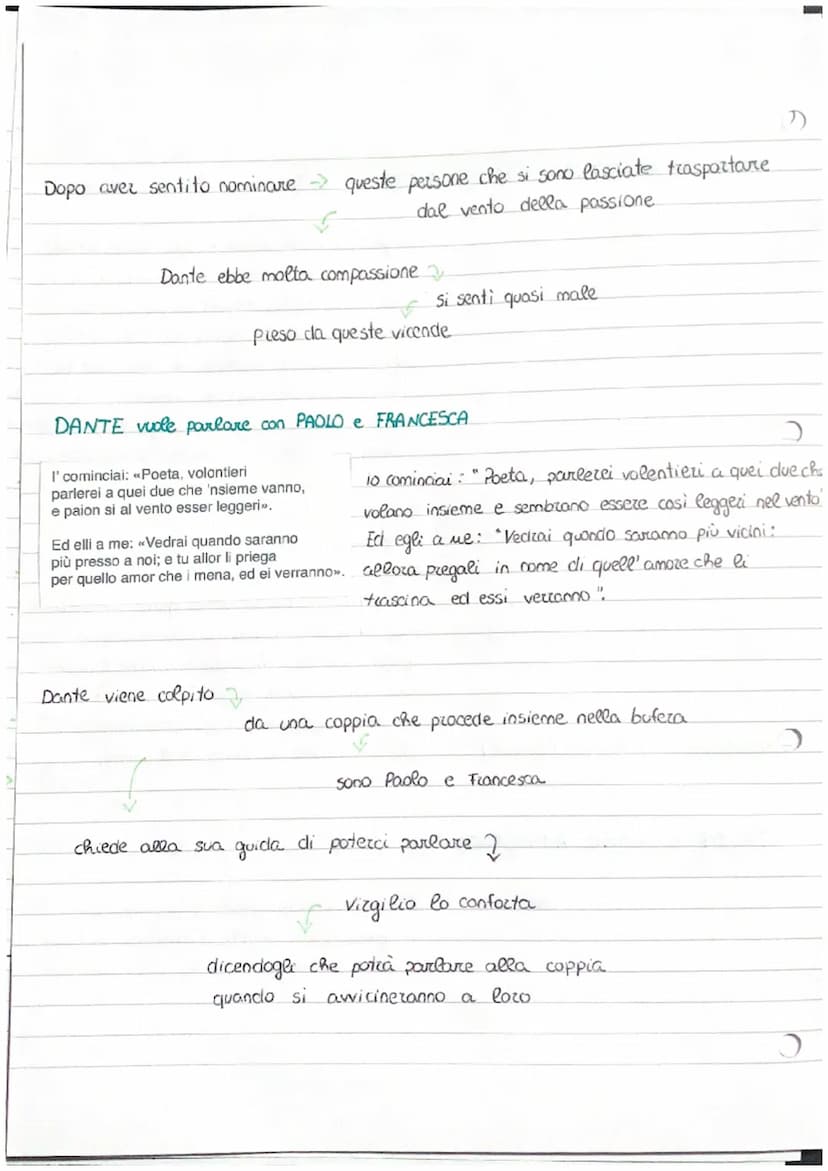 Dopo aver sentito nominare → queste persone che si sono lasciate trasportare
dal vento della passione
Dante ebbe molta compassione
si sentì quasi male
preso da queste vicende
DANTE vuole parlare con PAOLO e FRANCESCA
I' cominciai: «Poeta, volontieri
parlerei a quei due che 'nsieme vanno,
e paion sì al vento esser leggeri».
Ed elli a me: «Vedrai quando saranno
più presso a noi; e tu allor li priega
per quello amor che i mena, ed ei verranno».
io cominciai: "Poeta, parlerei volentieri a quei due ch
volano insieme e sembrano essere così leggeri nel vento
Ed egli a me: "Vedrai quando saranno più vicini:
allora pregali in nome di quell'amore che li
trascina ed essi verranno".
Dante viene colpito
da una coppia che procede insieme nella bufera
sono Paolo e Francesca
chiede alla sua guida di poterci parlare
Virgilio lo conforta
dicendogli che potrà parlare alla coppia
quando si avvicineranno a loro